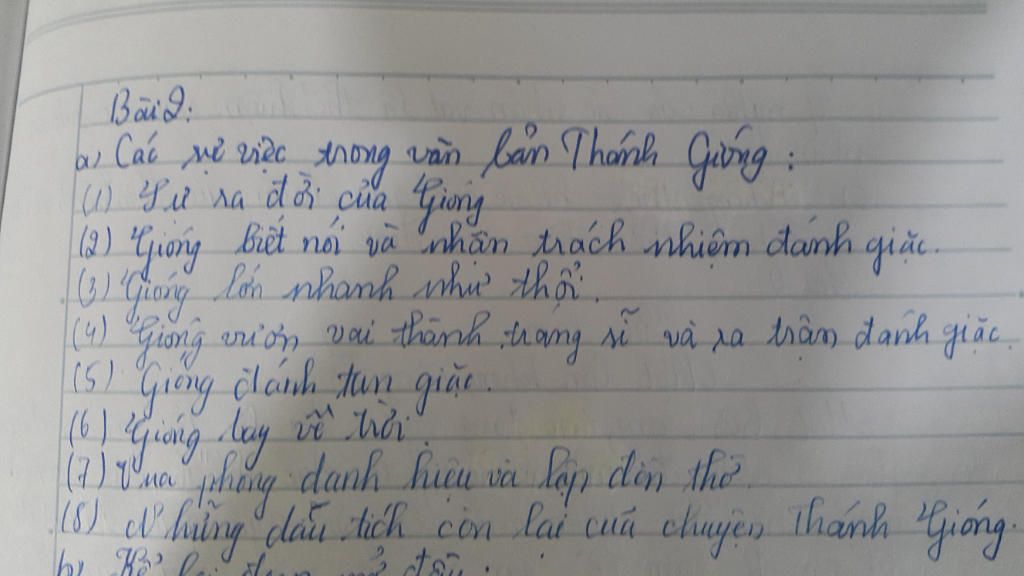 Bài 2:
a) Các sự việc trong văn bản Thánh Gióng:
(1) Sự ra đời của Gióng
(2) Gióng biết nói và nhận trách nhiệm đánh giặc.
(3) Gióng lớn nhanh như thổi.
(4) Gióng vươn vai thành tráng sĩ và ra trận đánh giặc.
(5) Gióng đánh tan giặc.
(6) Gióng bay về trời.
(7) Vua phong danh hiệu và lập đền thờ
(8) Những dấu tích còn lại của chuyện Thánh Gióng.
b) Kể lại đoạn mở đầu: